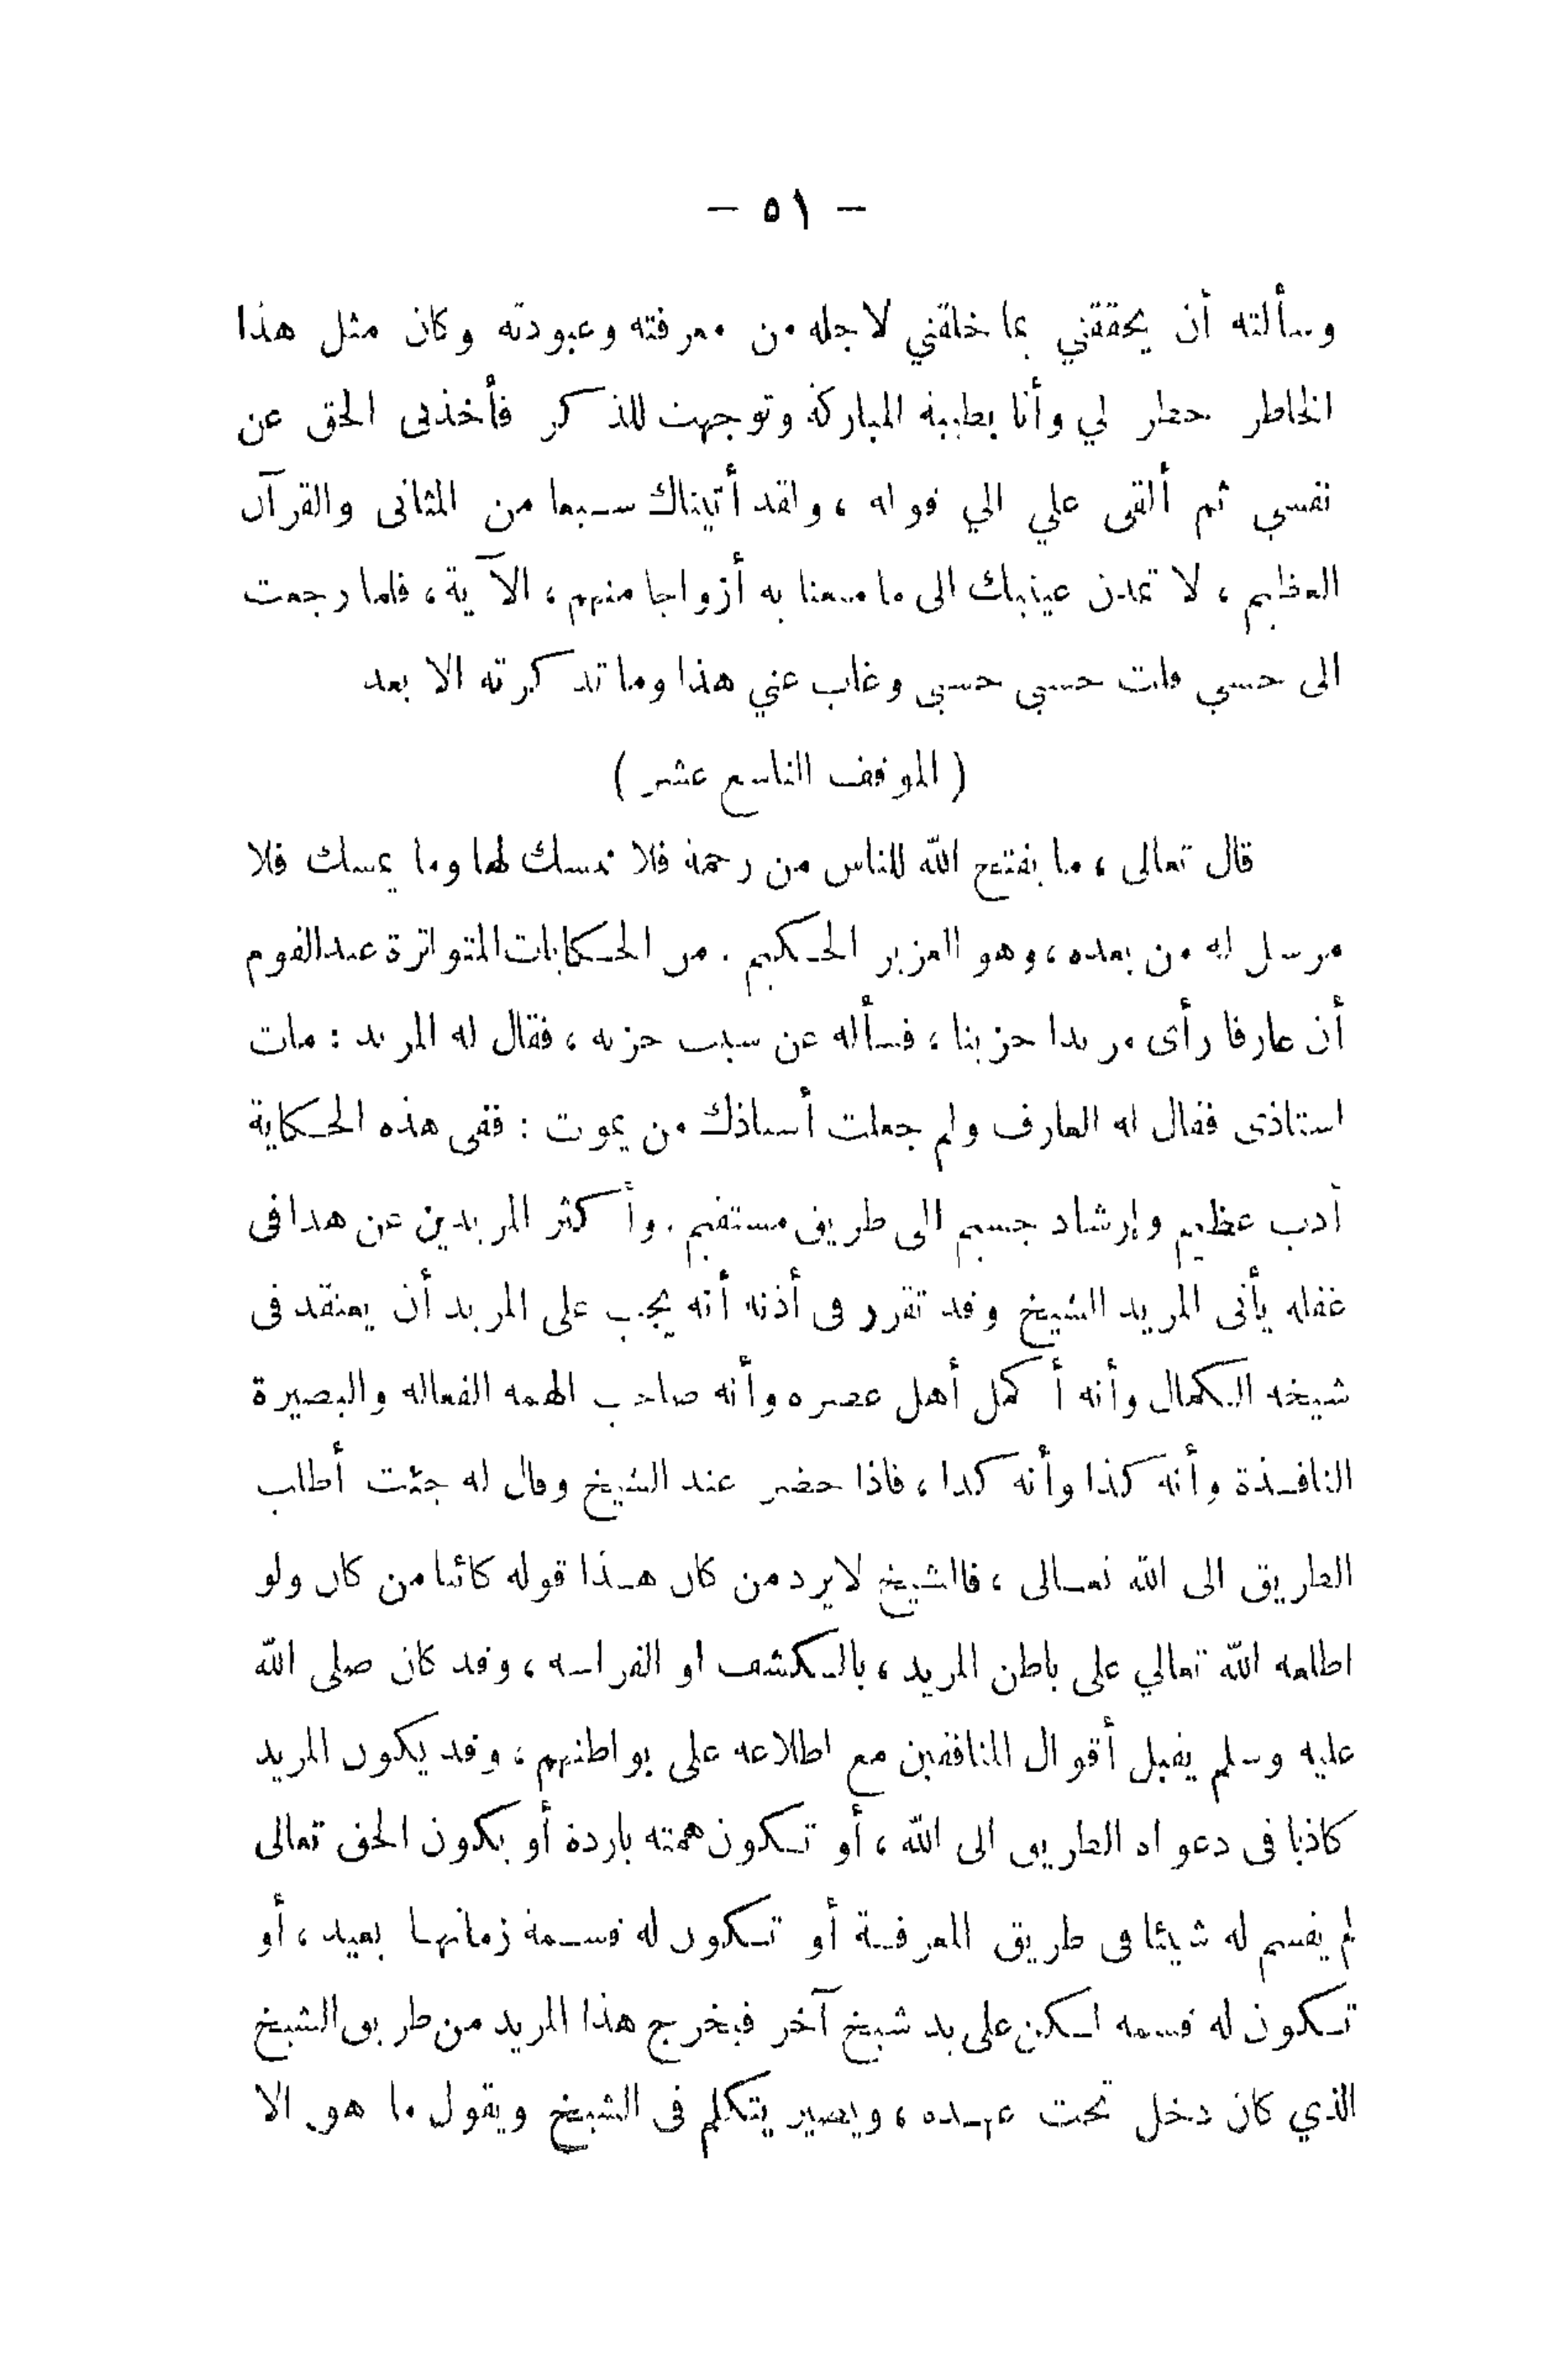 — ٥١ —
وسألته أن يحققني بما خلقني لاجله من معرفته وعبودته وكان مثل هذا
الخاطر خطر لي وأنا بطيبة المباركة وتوجهت للذكر فأخذنى الحق عن
نفسي ثم ألقى علي الي قوله ، ولقد أتيناك سبعا من المثانى والقرآن
العظيم ، لا تمدن عينيك الى ما متعنا به أزواجا منهم ، الآية ، فلما رجعت
الى حسي قلت حسبي حسبي وغاب عني هذا وما تذكرته الا بعد
( الموقف التاسع عشر )
قال تعالى ، ما يفتح الله للناس من رحمة فلا ممسك لها وما يمسك فلا
مرسل له من بعده ، وهو العزيز الحكيم . من الحكايات المتواترة عند القوم
أن عارفا رأى مريدا حزينا ، فسأله عن سبب حزنه ، فقال له المريد : مات
استاذى فقال له العارف ولم جعلت أستاذك من يموت : ففى هذه الحكاية
أدب عظيم وإرشاد جسيم الى طريق مستقيم . وأكثر المريدين عن هذا فى
غفله يأتى المريد الشيخ وقد تقرر فى أذنه أنه يجب على المريد أن يعتقد فى
شيخه الكمال وأنه أكمل أهل عصره وأنه صاحب الهمه الفعاله والبصيرة
النافذة وأنه كذا وأنه كذا ، فاذا حضر عند الشيخ وقال له جئت أطلب
الطريق الى الله تعالى ، فاالشيخ لا يرد من كان هذا قوله كائنا من كان ولو
اطلعه الله تعالي على باطن المريد ، بالكشف او الفراسه ، وقد كان صلى الله
عليه وسلم يقبل أقوال المنافقين مع اطلاعه على بواطنهم ، وقد يكون المريد
كاذبا فى دعواه الطريق الى الله ، أو تكون همته باردة أو يكون الحق تعالى
لم يقسم له شيئا فى طريق المعرفة أو تكون له قسمة زمانها بعيد ، أو
تكون له قسمه لكن على يد شيخ آخر فيخرج هذا المريد من طريق الشيخ
الذي كان دخل تحت عهده ، ويصير يتكلم فى الشيخ ويقول ما هو الا